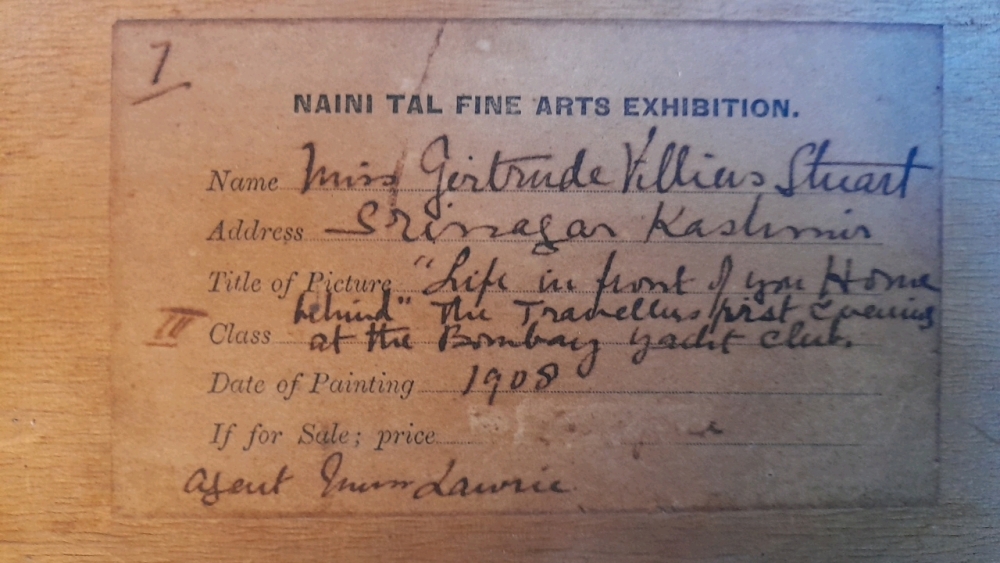 7
NAINI TAL FINE ARTS EXHIBITION.
Name Miss Gertrude Villiers Stuart
Address Srinagar Kashmir
Title of Picture "Life in front of you Home
behind" The Travellers first Evening
III Class at the Bombay Yacht Club.
Date of Painting 1908
If for Sale; price
Agent Lawrie